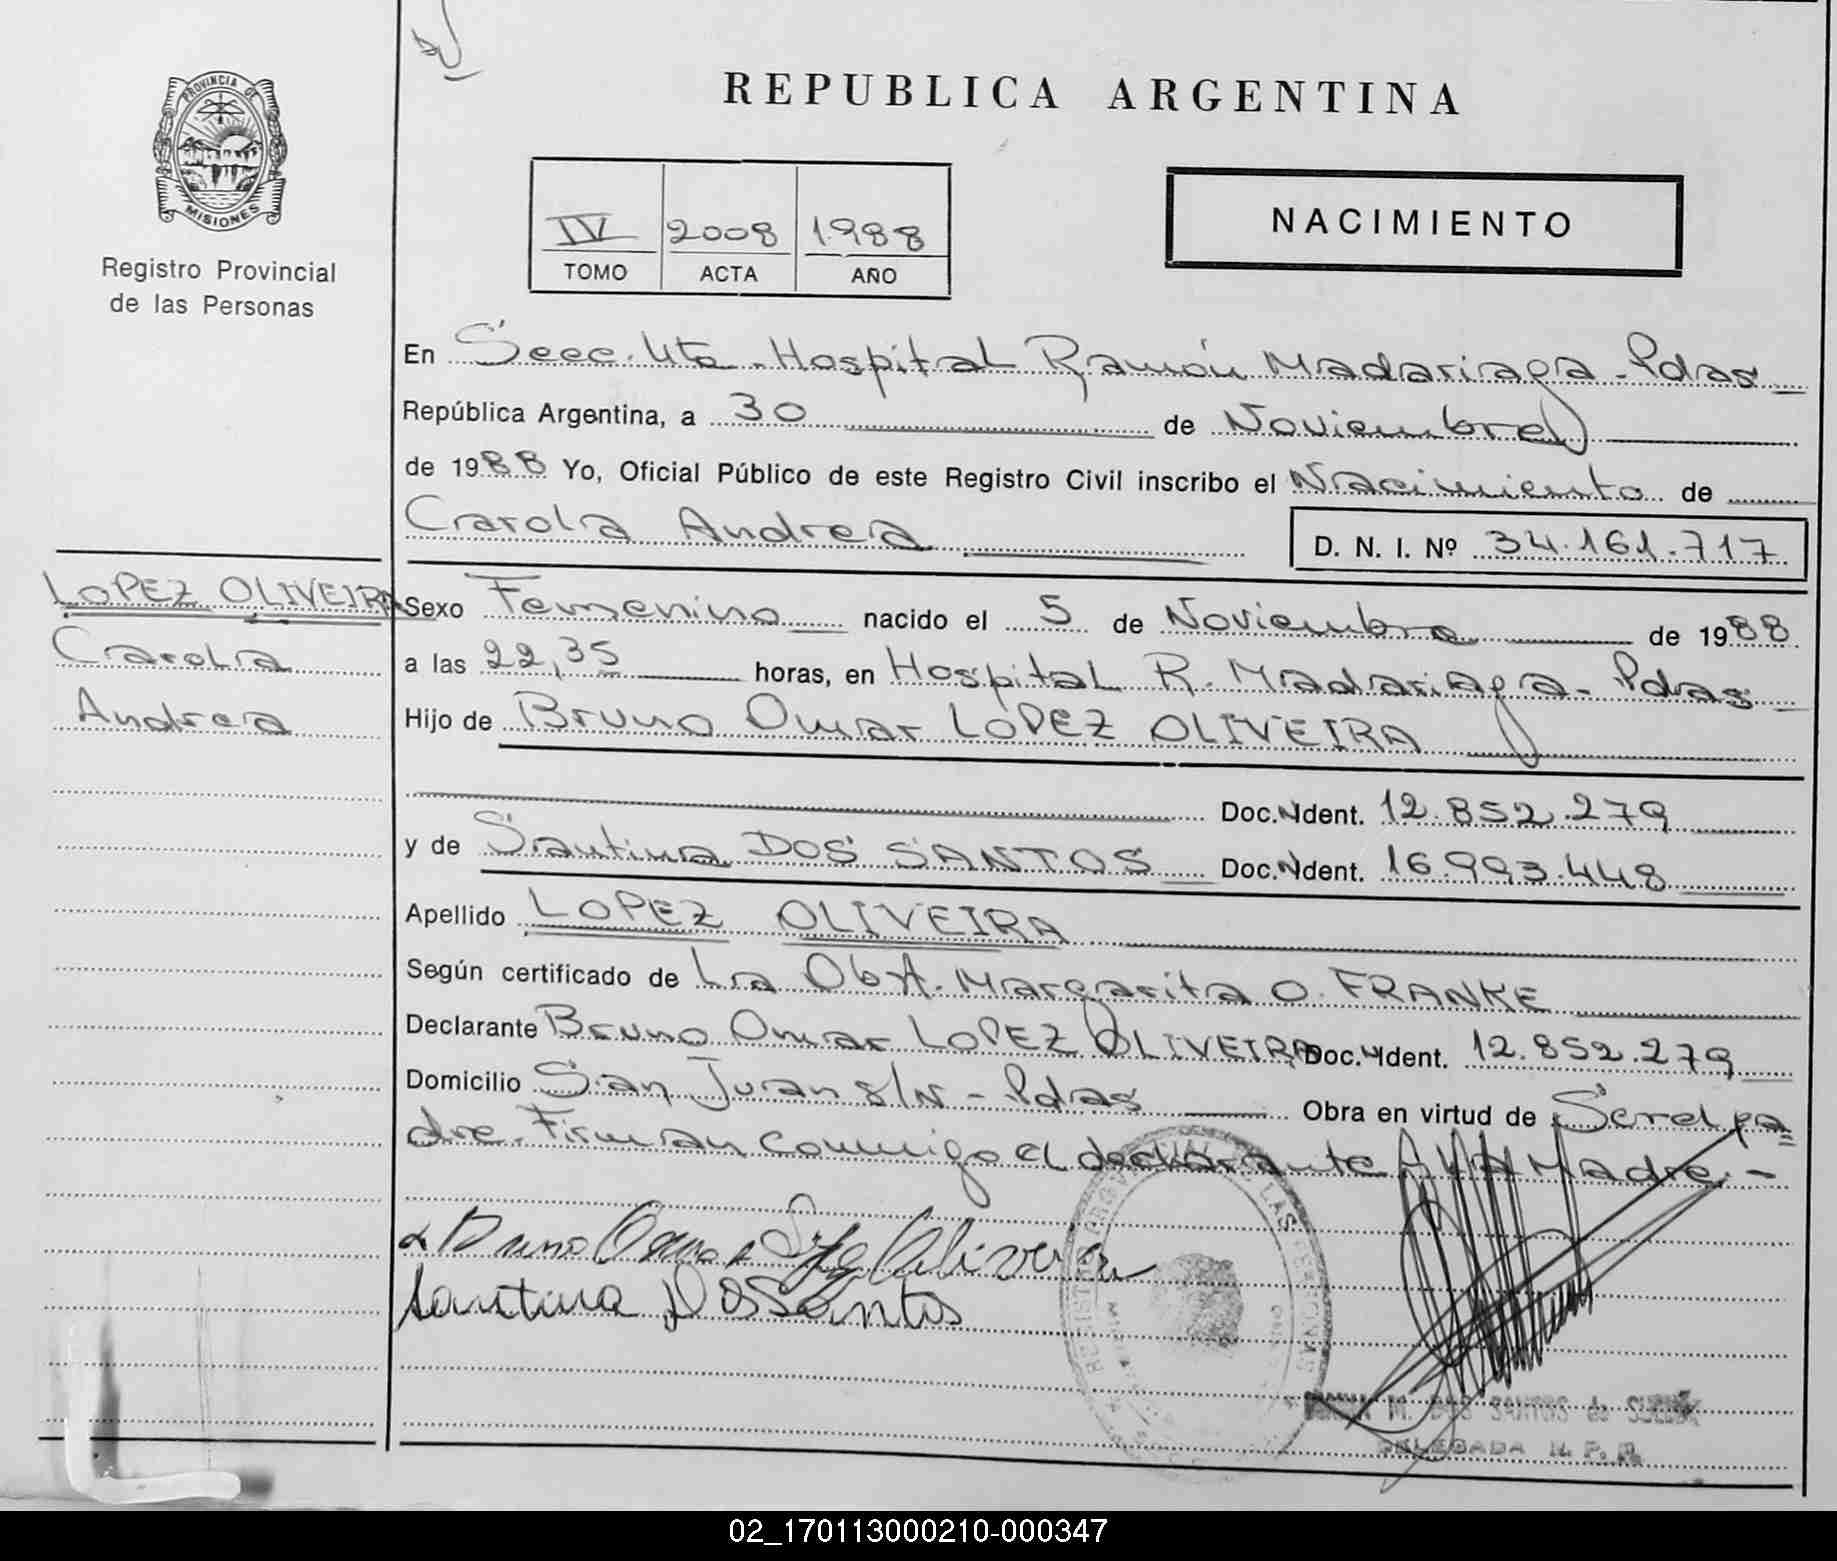 PROVINCIA DE
MISIONES
Registro Provincial
de las Personas
REPUBLICA ARGENTINA
IV 2008 1988
TOMO ACTA AÑO
NACIMIENTO
En Secc. 4ta. Hospital Ramón Madariaga - Pdas
República Argentina, a 30 de Noviembre
de 1988 Yo, Oficial Público de este Registro Civil inscribo el Nacimiento de
Carola Andrea
D. N. I. Nº 34.161.717
LOPEZ OLIVEIRA
Carola
Andrea
Sexo Femenino nacido el 5 de Noviembre de 1988
a las 22,35 horas, en Hospital R. Madariaga - Pdas
Hijo de Bruno Omar LOPEZ OLIVEIRA
Doc. Ident. 12.852.279
y de Santina DOS SANTOS Doc. Ident. 16.993.448
Apellido LOPEZ OLIVEIRA
Según certificado de La Obst. Margarita O. FRANKE
Declarante Bruno Omar LOPEZ OLIVEIRA Doc. Ident. 12.852.279
Domicilio San Juan s/N - Pdas Obra en virtud de Ser el pa=
dre. Firman conmigo el declarante Madre. -
Bruno Omar Lopez Oliveira
Santina Dos Santos
M. DOS SANTOS de
DELEGADA R. P. P.
02_170113000210-000347